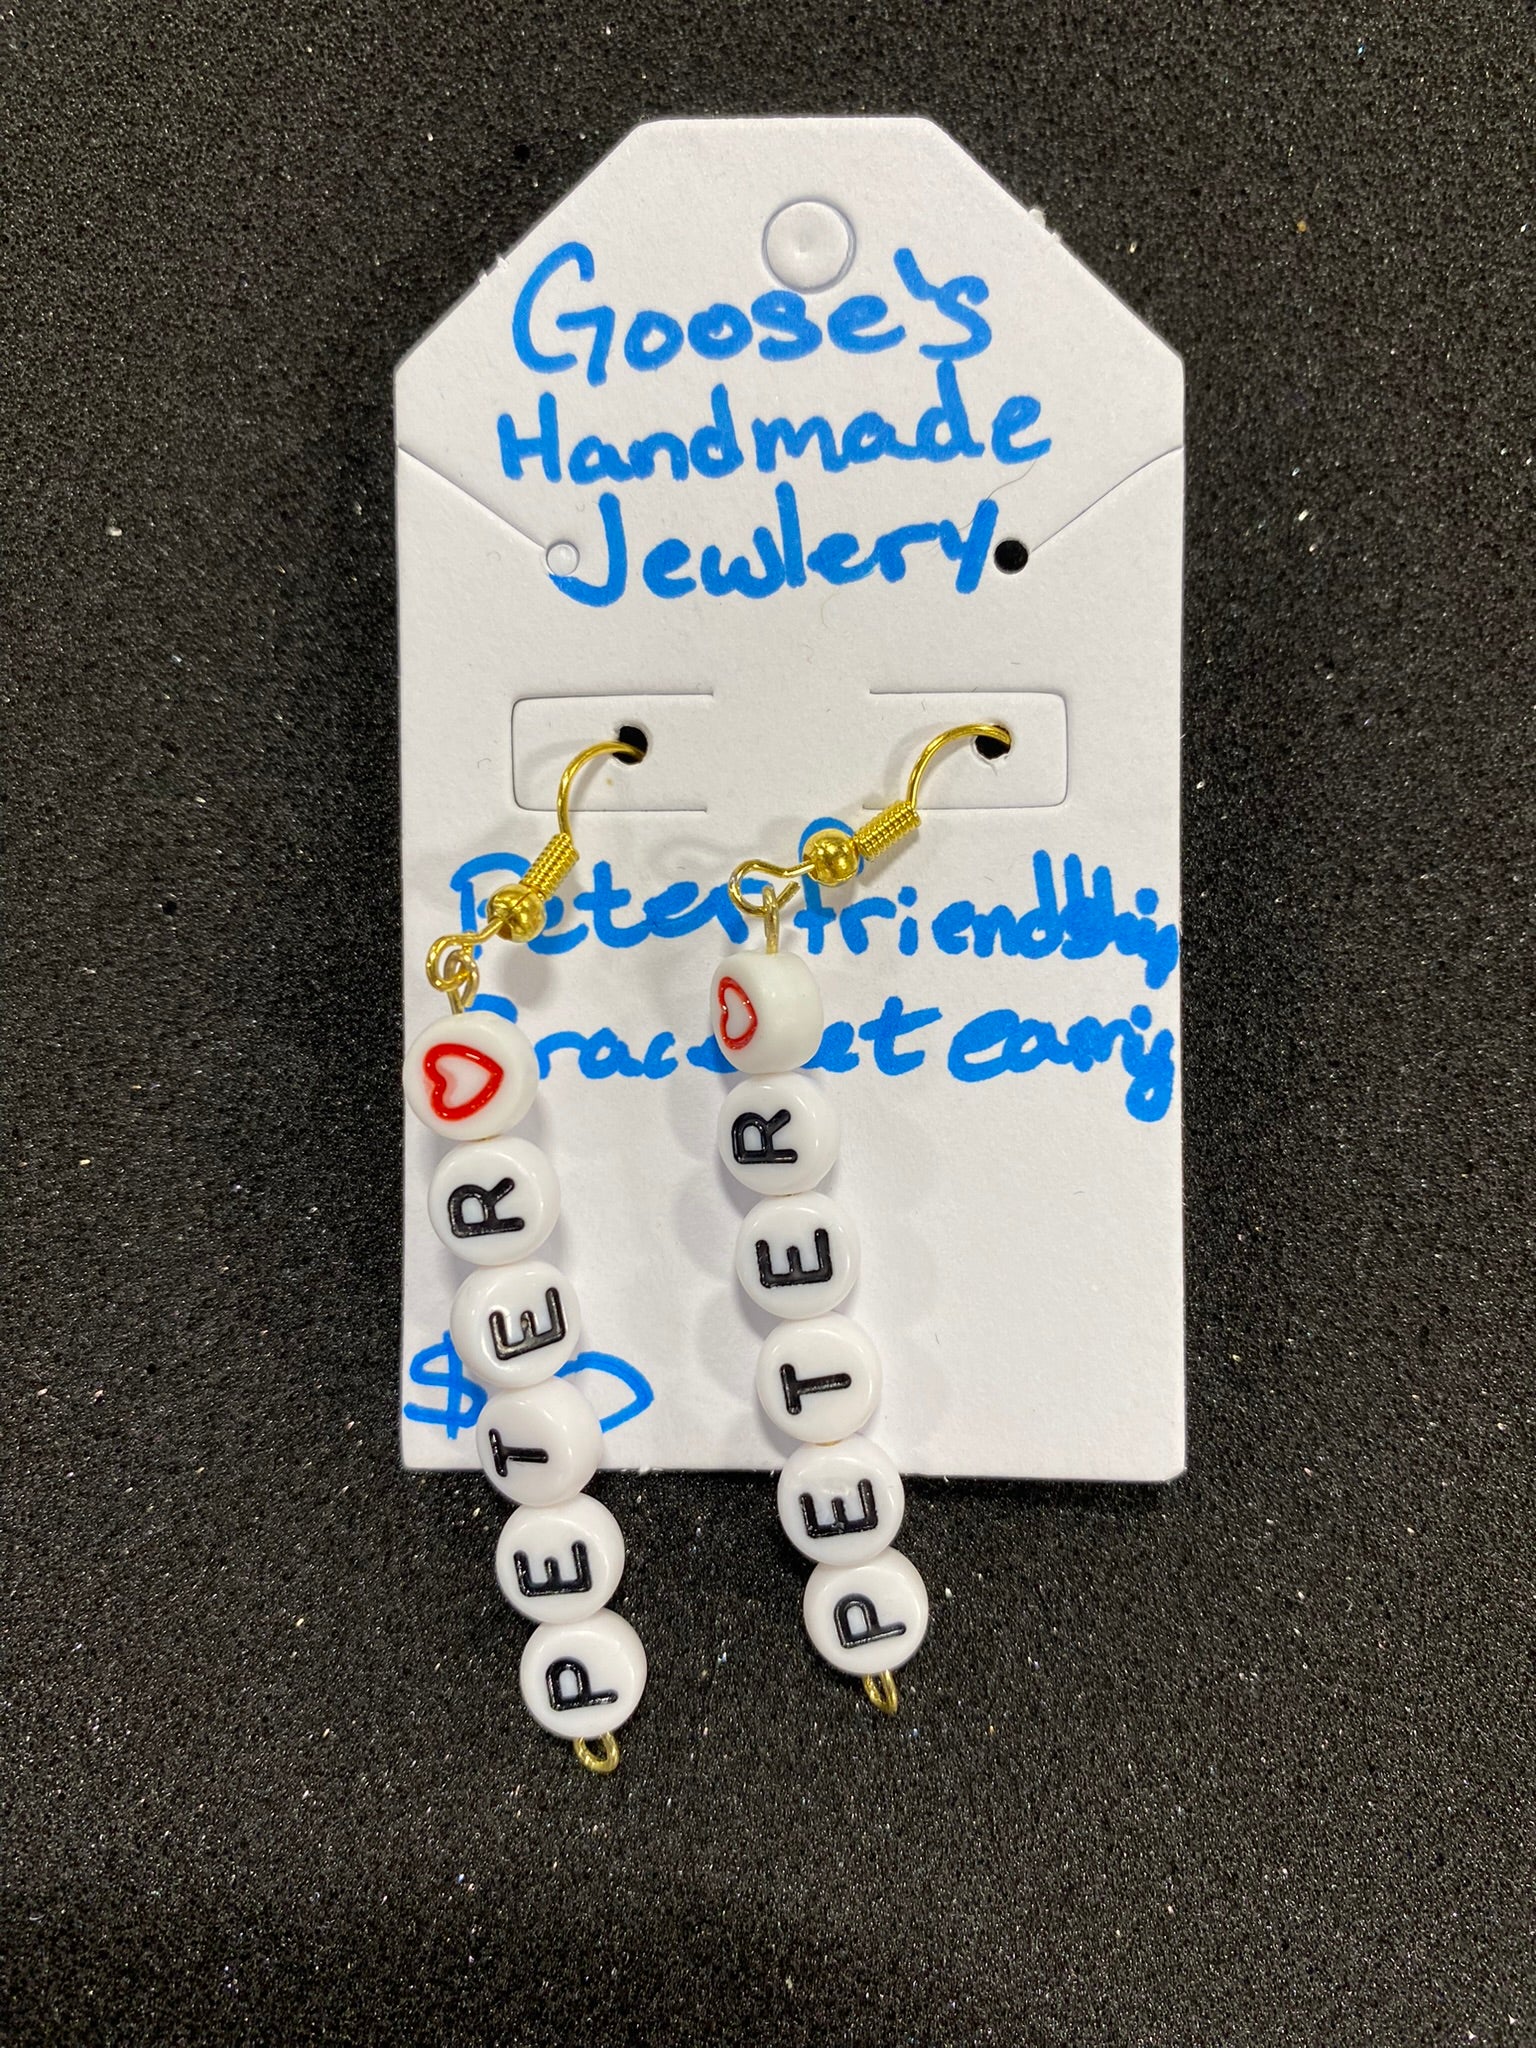 Goose's
Handmade
Jewlery
Peter friendship
Bracelet earring
$
PETER
PETER